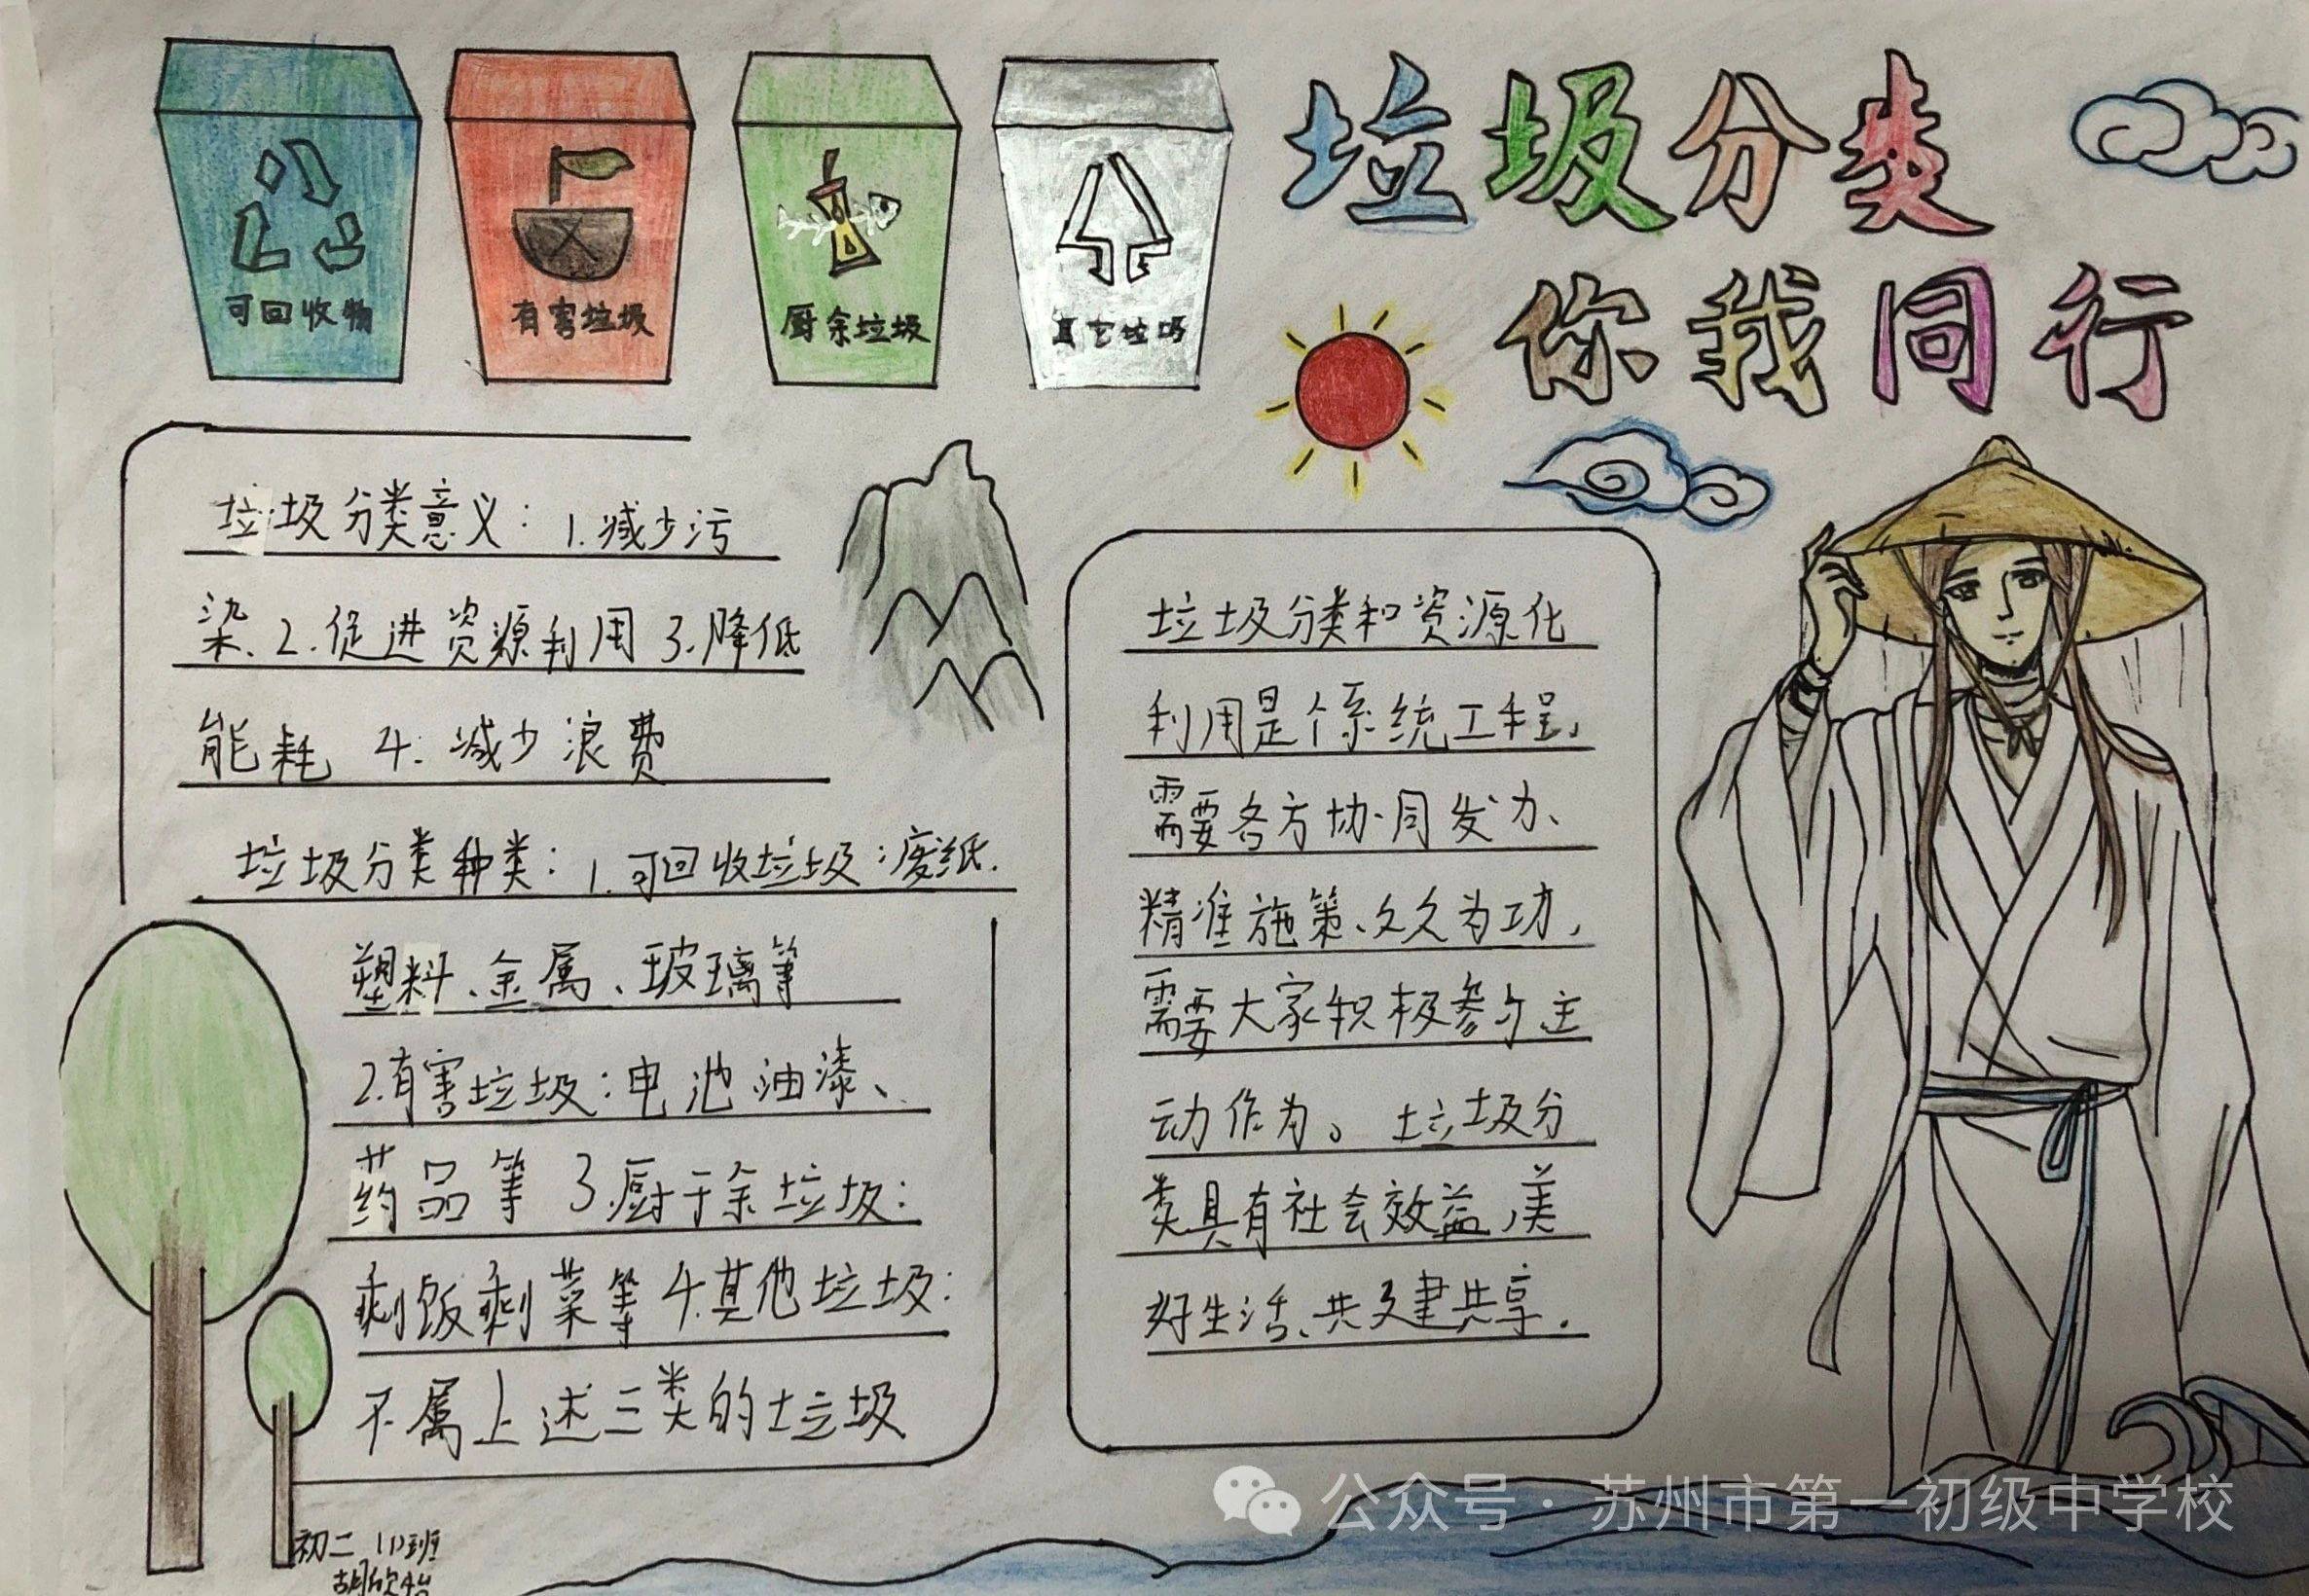 可回收物
有害垃圾
厨余垃圾
其它垃圾
垃圾分类
你我同行
垃圾分类意义：1.减少污
染、2.促进资源利用 3.降低
能耗 4.减少浪费
垃圾分类种类：1.可回收垃圾：废纸.
塑料、金属、玻璃等
2.有害垃圾：电池油漆、
药品等 3.厨于余垃圾：
剩饭剩菜等 4.其他垃圾：
不属上述三类的垃圾
垃圾分类和资源化
利用是个系统工程，
需要各方协同发力、
精准施策、久久为功，
需要大家积极参与主
动作为。垃圾分
类具有社会效益，美
好生活、共建共享.
初二 (1)班
公众号·苏州市第一初级中学校